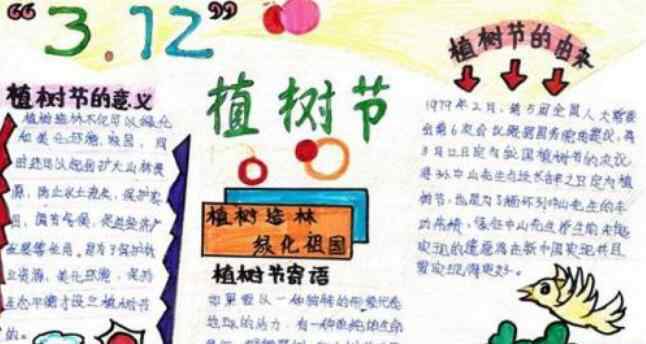 “3.12”
植树节
植树节的意义
植树造林不仅可以绿化
和美化环境,
同
时还可以起到扩大山林资
源,防止水土流失,保护农
田,调节气候,促进经济产
业发展等作用。是为了保护林
业资源、美化环境、保持
生态平衡才设立植树节
的。
植树造林
绿化祖国
植树节寄语
如果要以一种独特的形象代表
地球的活力,有一种
植树节的由来
1979年2月,第5届全国人大常委
会第6次会议根据国务院提议,将
3月12日定为我国植树节的决议
将孙中山先生逝世之日定为植
树节,也是为了缅怀孙中山先生的丰
功伟绩,象征中山先生
实现的遗愿将在新中国实现并且
要实现得更好。